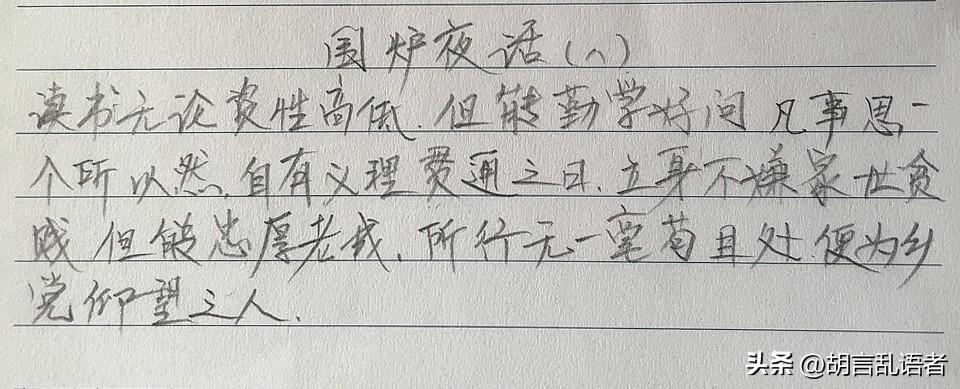 围炉夜话(八)
读书无论资性高低.但能勤学好问凡事思一
个所以然.自有义理贯通之日.立身不嫌家世贫
贱但能忠厚老成.所行无一毫苟且处.便为乡
党仰望之人.
头条 @胡言乱语者